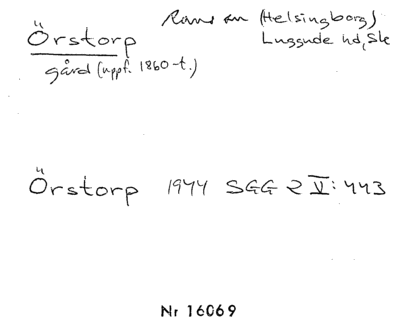 Örstorp Raus sn (Helsingborg)
Luggude hd, Sk
gård (uppf. 1860-t.)
Örstorp 1944 SGG 2 V: 443
Nr 16069